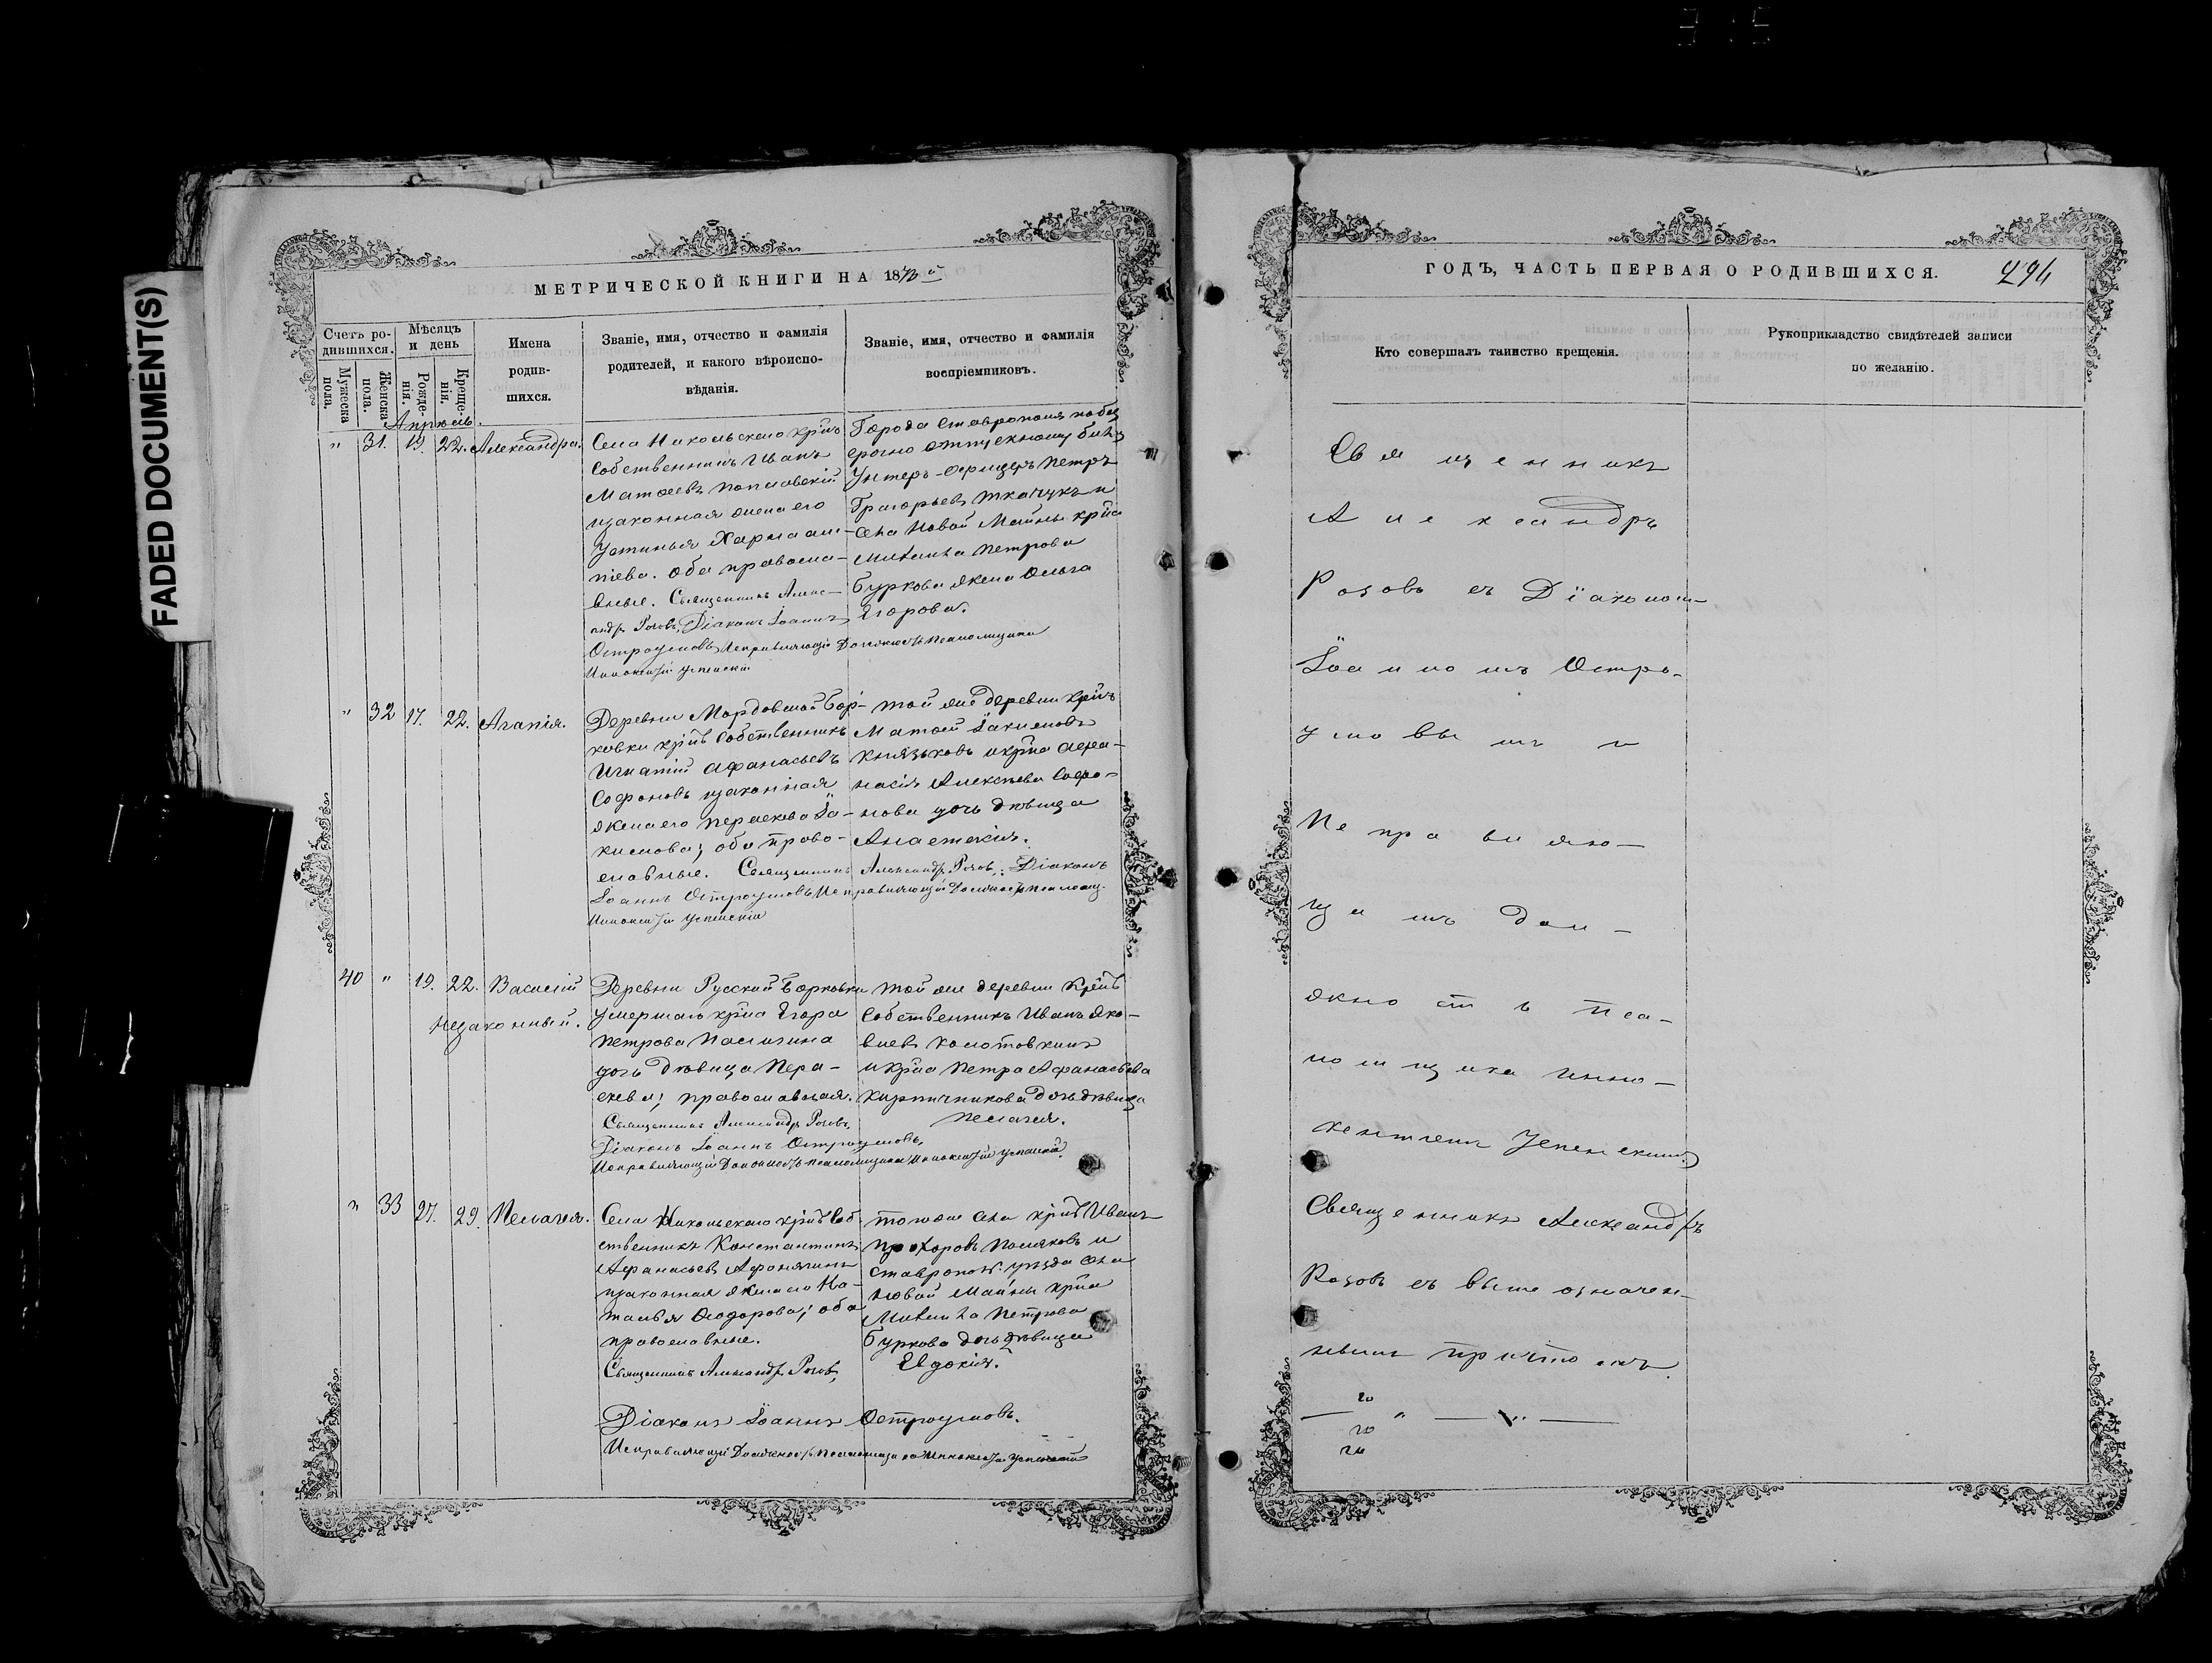 FADED DOCUMENT(S)
МЕТРИЧЕСКОЙ КНИГИ НА 1873й
Счетъ ро-
дившихся.
Мужеска
пола.
Женска
пола.
Мѣсяцъ
и день
Рожде-
нія.
Креще-
нія.
Имена
родив-
шихся.
Званіе, имя, отчество и фамилія
родителей, и какого вѣроиспо-
вѣданія.
Званіе, имя, отчество и фамилія
воспріемниковъ.
Апрѣль.
" 31. 19. 22. Александра.
Села Никольскаго крнъ
Собственникъ Иванъ
Матѳеевъ
изаконная жена его
Устинья Харлам-
піева. Оба правосла-
вные. Священникъ Алекс-
андръ Розовъ, Діаконъ Іоаннъ
Остроумовъ Исправляющій Должность Псаломщика
Иннокентій Успенскій
Города Ставрополя
срочно отпускному
Унтеръ-Офицеръ Петръ
Григорьевъ Ткачукъ и
села Новой Майны крна
Михаила Петрова
Буркова жена Ольга
Егорова.
" 32 17. 22. Агапія.
Деревни Мордовской Бор-
ковки крнъ Собственникъ
Игнатій Афанасьевъ
Софоновъ изаконная
жена его Параскева Іа-
кимова; оба право-
славные. Священникъ Александръ Розовъ, Діаконъ
Іоаннъ Остроумовъ Исправляющій Должность псаломщ.
Иннокентій Успенскій
той же деревни крнъ
Матѳей Іакимовъ
Князьковъ икрна Афа-
насія Алексѣева Софо-
нова дочь дѣвица
Анастасія.
40 " 19. 22. Василій
Незаконный.
Деревни Русской Борковки
умершаго крна Егора
Петрова
дочь дѣвица Пара-
скева; православная.
Священникъ Александръ Розовъ,
Діаконъ Іоаннъ Остроумовъ,
Исправляющій Должность псаломщика Иннокентій Успенскій.
той же деревни крнъ
Собственникъ Иванъ Яко-
влевъ Колотовкинъ
икрна Петра Афанасьева
Кирпичникова дочь дѣвица
Пелагея.
" 33 27. 29. Пелагея.
Села Никольскаго крнъ Соб
ственникъ Константинъ
Афанасьевъ Афонягинъ
изаконная жена его На-
талья Ѳеодорова; оба
православные.
Священникъ Александръ Розовъ,
Діаконъ Іоаннъ Остроумовъ.
Исправляющій Должность Псаломщика Иннокентій Успенскій
тогоже села крнъ Иванъ
Прохоровъ Поляковъ и
Ставропол. уѣзда села
Новой Майны крна
Михаила Петрова
Буркова дочь дѣвица
Евдокія.
ГОДЪ, ЧАСТЬ ПЕРВАЯ О РОДИВШИХСЯ.
294
Кто совершалъ таинство крещенія.
Рукоприкладство свидѣтелей записи
по желанію.
Священникъ
Александръ
Розовъ съ Діакономъ
Іоанномъ Остро-
умовымъ и
Исправляю-
щимъ дол-
жность Пса-
ломщика Инно-
кентіемъ Успенскимъ
Священникъ Александръ
Розовъ съ вышеозначен-
нымъ причтомъ.